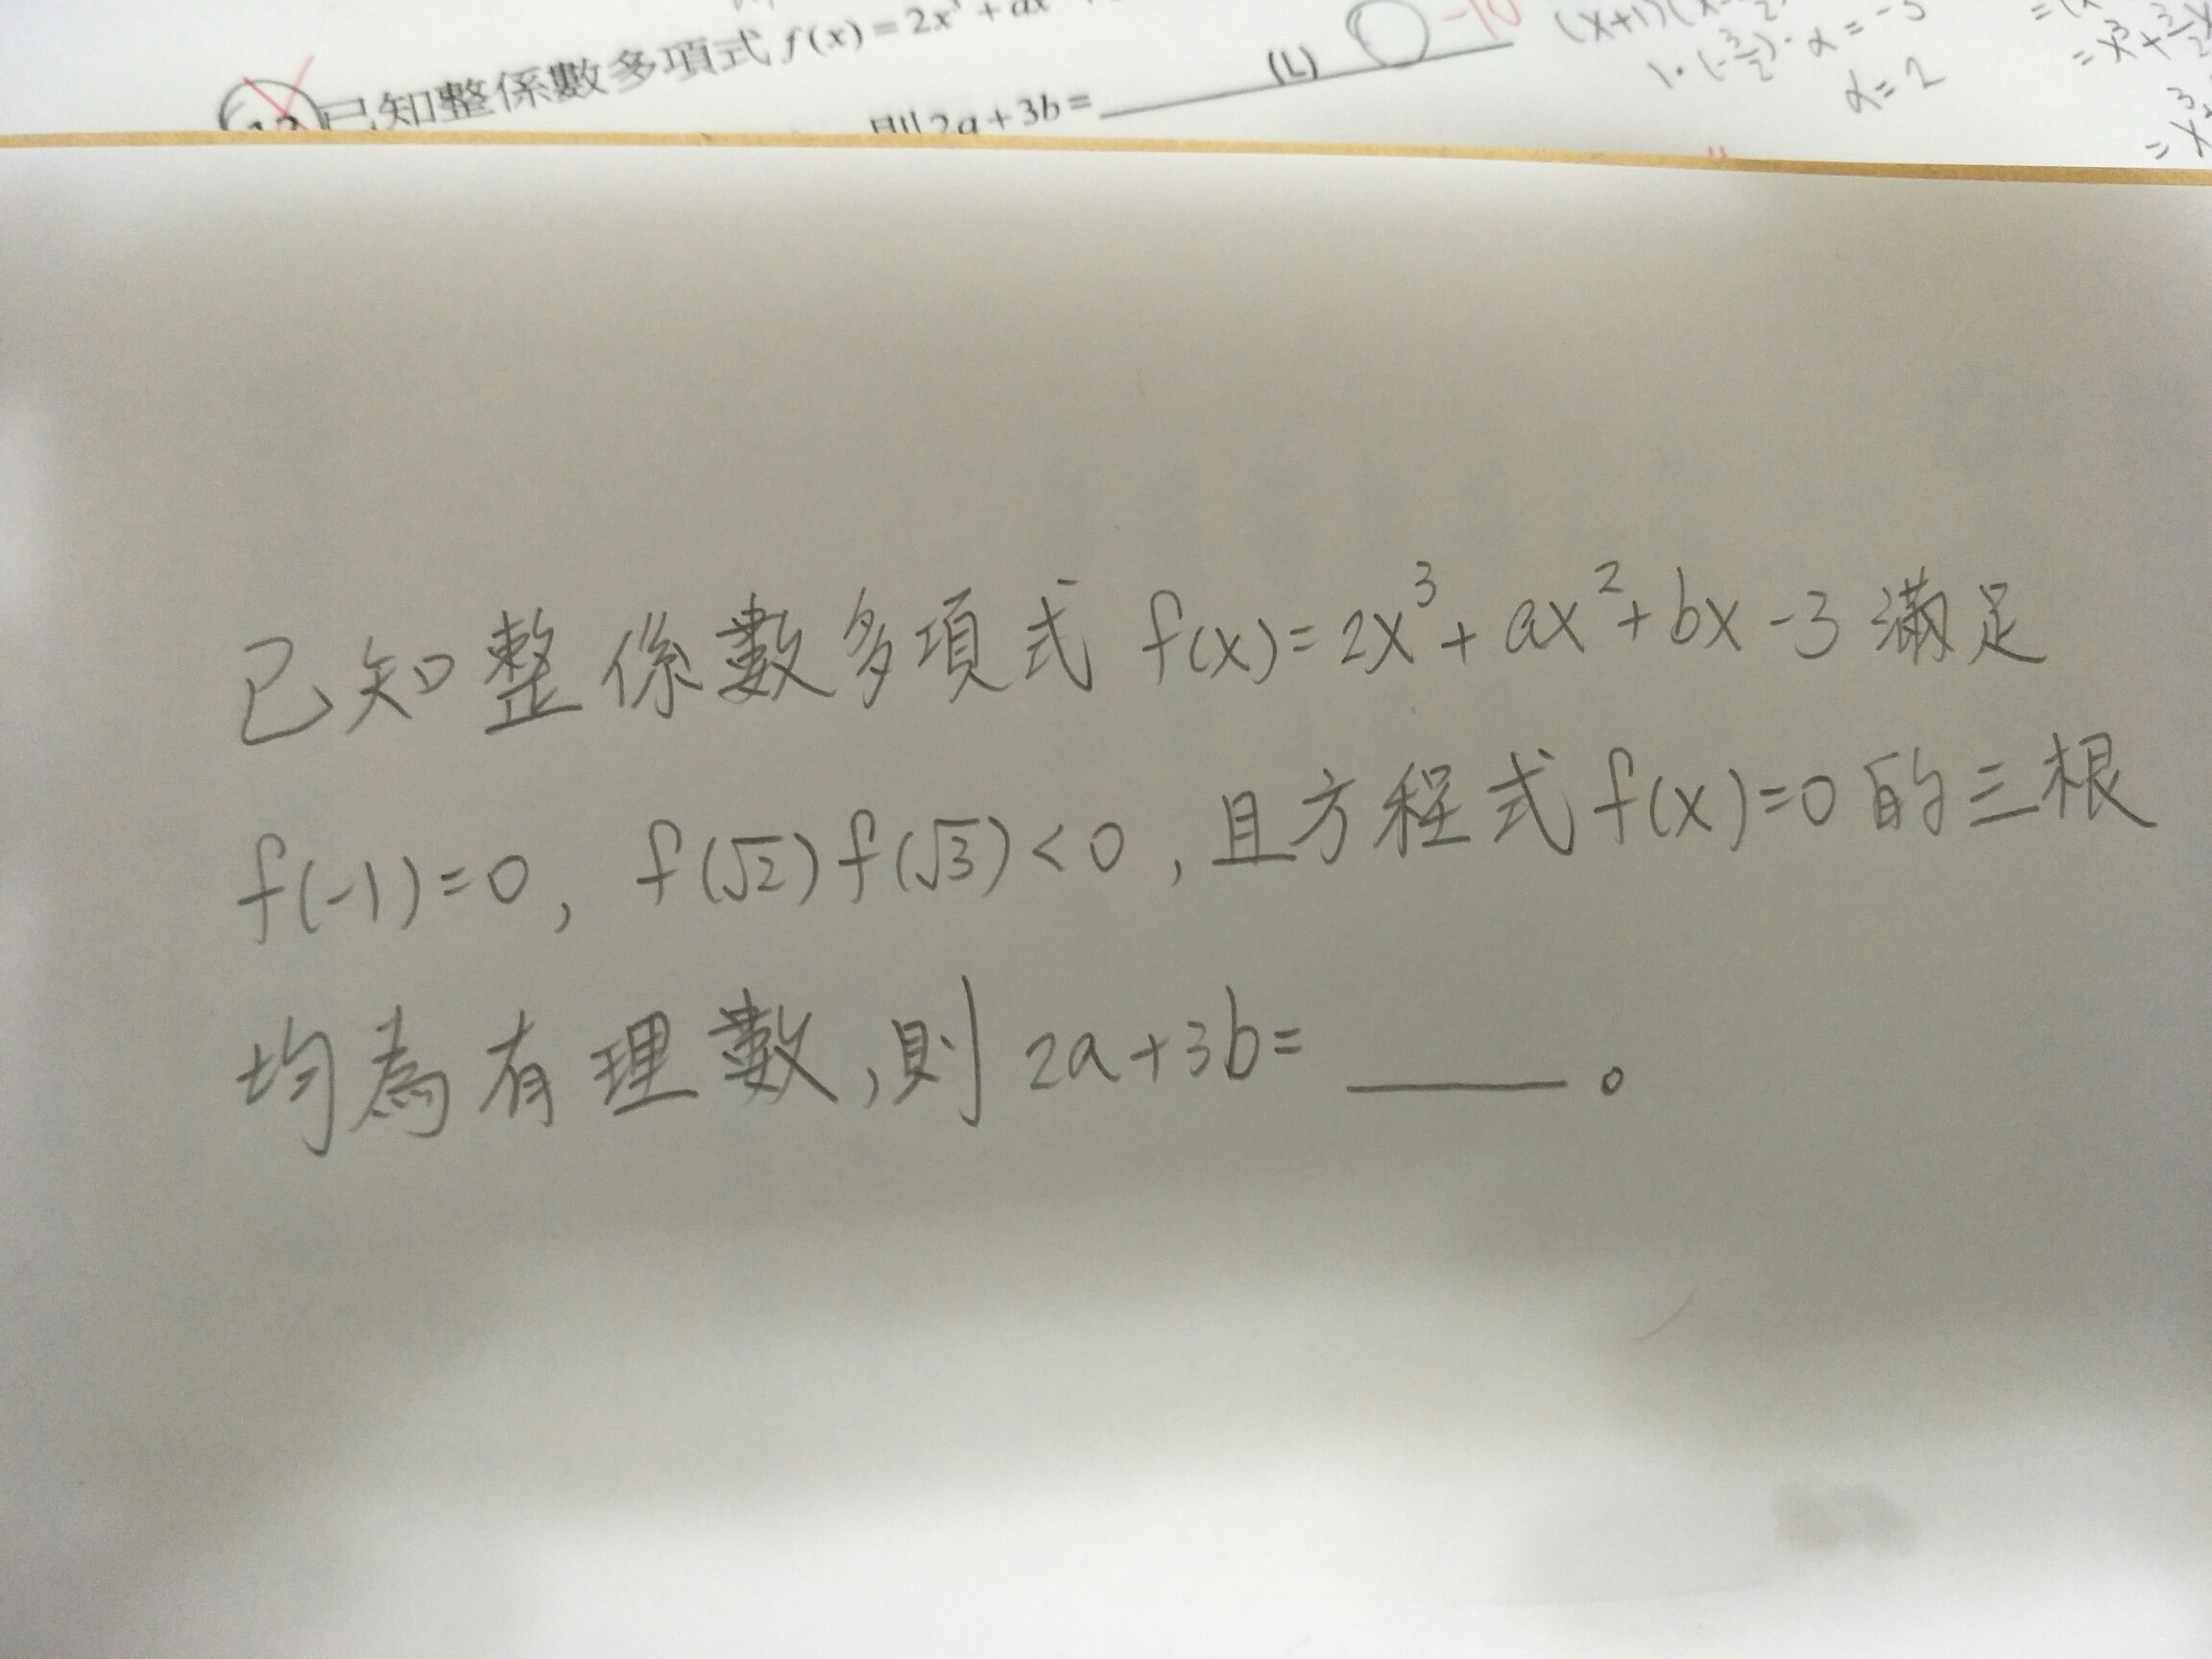 已知整係數多項式 f(x)=2x³+ax
則2a+3b=______(L)
-10
α=2
已知整係數多項式 f(x)=2x³+ax²+bx-3 滿足
f(-1)=0, f(√2)f(√3)<0,且方程式f(x)=0的三根
均為有理數,則 2a+3b=______。